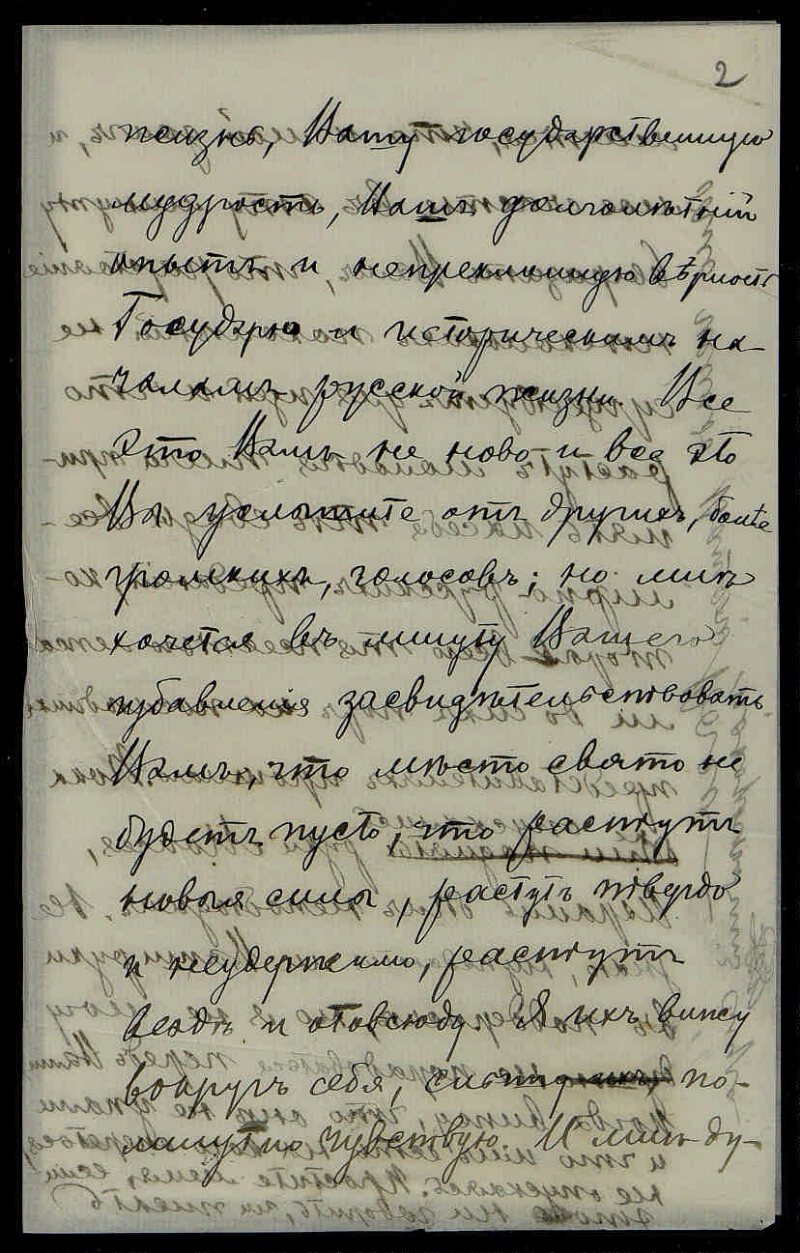 2
жизнь, Вашу государственную
мудрость, Вашъ долголѣтній
опытъ и непреклонную вѣрность
Государю и историческимъ на-
чаламъ русской жизни. Все
это Вамъ не ново и все это
Вы услышите отъ другихъ, болѣе
громкихъ, голосовъ; но мнѣ
хочется въ минуту Вашего
избавленія засвидѣтельствовать
Вамъ, что мѣсто свято не
будетъ пусто, что растутъ
новыя силы, растутъ твердо
и неудержимо, растутъ
вездѣ и отовсюду. Я ихъ вижу
вокругъ себя, по-
минутно чувствую. И мнѣ ду-